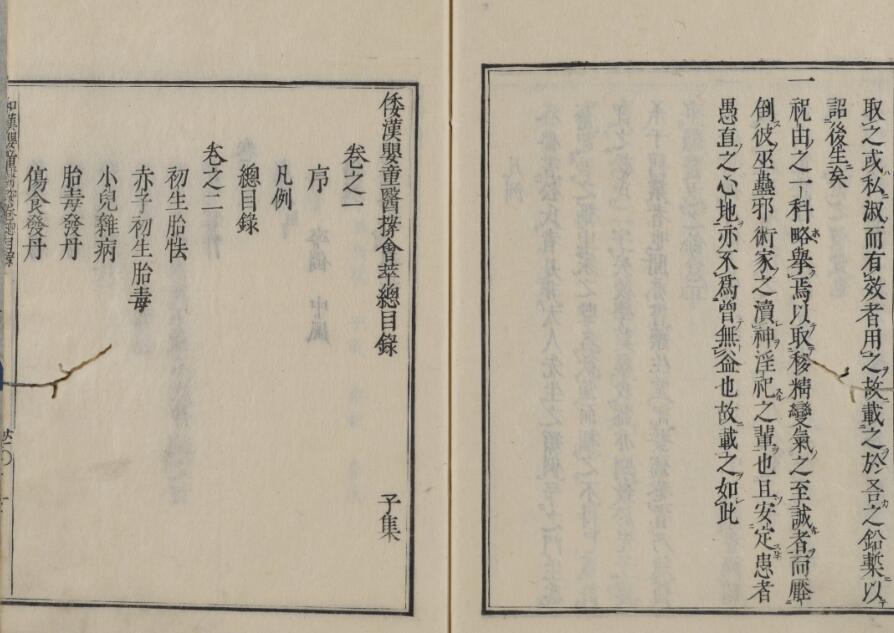 取之或私淑而有效者用之故載之於吾之鉛槧以
詔後生矣
一祝由之一科略舉焉以取移精變氣之至誠者而壓
倒彼巫蠱邪術家之瀆神淫祀之輩也且安定患者
愚直之心地亦不爲曾無益也故載之如此
倭漢嬰童醫撈會萃總目錄 子集
卷之一
序
凡例
總目錄
卷之二
初生胎怯
赤子初生胎毒
小兒雜病
胎毒發丹
傷食發丹